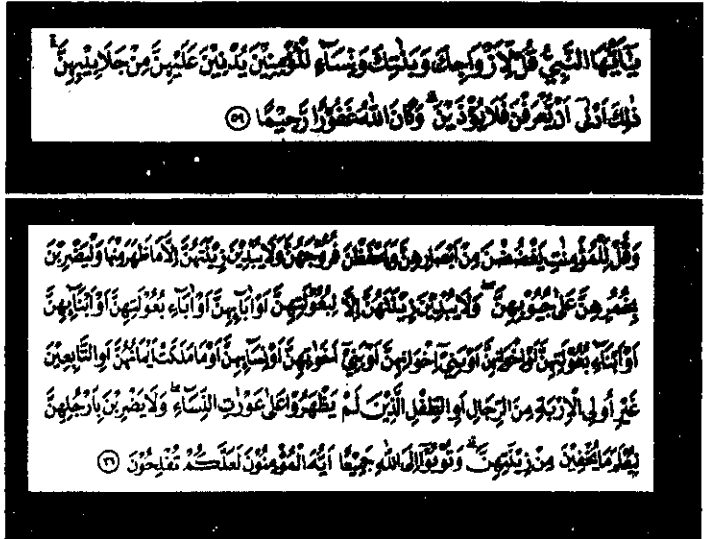 يٰٓاَيُّهَا النَّبِيُّ قُلْ لِّاَزْوَاجِكَ وَبَنٰتِكَ وَنِسَآءِ الْمُؤْمِنِيْنَ يُدْنِيْنَ عَلَيْهِنَّ مِنْ جَلَابِيْبِهِنَّ ۗ
ذٰلِكَ اَدْنٰٓى اَنْ يُّعْرَفْنَ فَلَا يُؤْذَيْنَ ۗ وَكَانَ اللّٰهُ غَفُوْرًا رَّحِيْمًا ٥٩
وَقُلْ لِّلْمُؤْمِنٰتِ يَغْضُضْنَ مِنْ اَبْصَارِهِنَّ وَيَحْفَظْنَ فُرُوْجَهُنَّ وَلَا يُبْدِيْنَ زِيْنَتَهُنَّ اِلَّا مَا ظَهَرَ مِنْهَا وَلْيَضْرِبْنَ
بِخُمُرِهِنَّ عَلٰى جُيُوْبِهِنَّ ۖ وَلَا يُبْدِيْنَ زِيْنَتَهُنَّ اِلَّا لِبُعُوْلَتِهِنَّ اَوْ اٰبَآئِهِنَّ اَوْ اٰبَآءِ بُعُوْلَتِهِنَّ اَوْ اَبْنَآئِهِنَّ
اَوْ اَبْنَآءِ بُعُوْلَتِهِنَّ اَوْ اِخْوَانِهِنَّ اَوْ بَنِيْٓ اِخْوَانِهِنَّ اَوْ بَنِيْٓ اَخَوٰتِهِنَّ اَوْ نِسَآئِهِنَّ اَوْ مَا مَلَكَتْ اَيْمَانُهُنَّ اَوِ التَّابِعِيْنَ
غَيْرِ اُولِى الْاِرْبَةِ مِنَ الرِّجَالِ اَوِ الطِّفْلِ الَّذِيْنَ لَمْ يَظْهَرُوْا عَلٰى عَوْرٰتِ النِّسَآءِ ۖ وَلَا يَضْرِبْنَ بِاَرْجُلِهِنَّ
لِيُعْلَمَ مَا يُخْفِيْنَ مِنْ زِيْنَتِهِنَّ ۗ وَتُوْبُوْٓا اِلَى اللّٰهِ جَمِيْعًا اَيُّهَ الْمُؤْمِنُوْنَ لَعَلَّكُمْ تُفْلِحُوْنَ ٣١